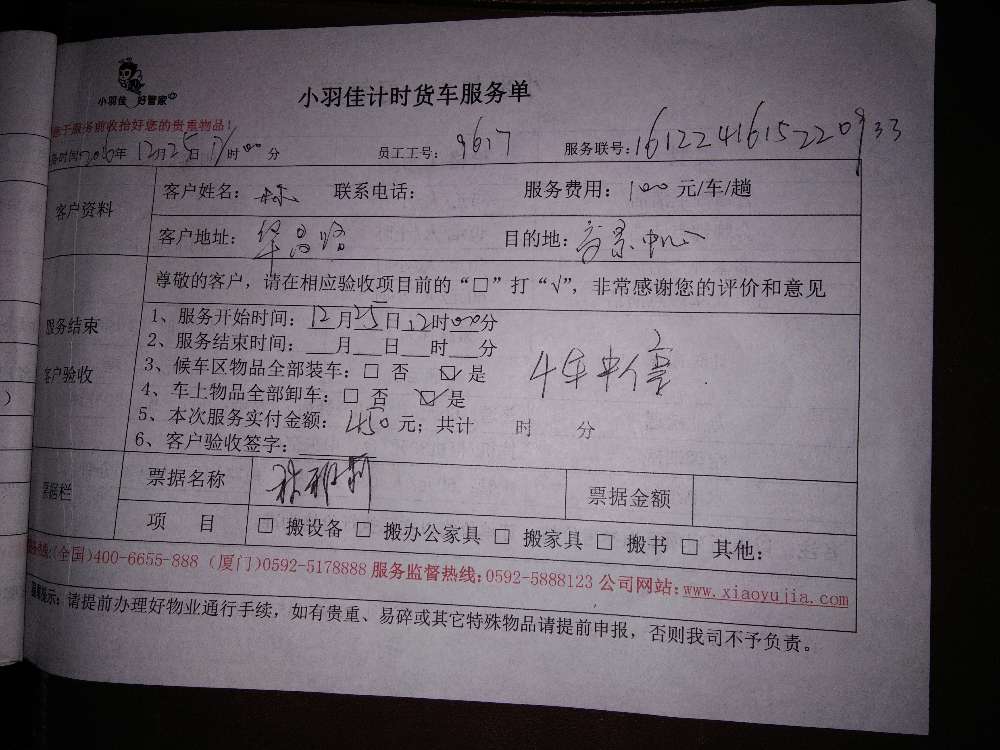 小羽佳 好管家
小羽佳计时货车服务单
于服务前收拾好您的贵重物品!
务时间2016年12月25日12时00分 员工工号: 9617 服务联号:161224161522093
客户资料
客户姓名: 林 联系电话: 服务费用: 100 元/车/趟
客户地址: 华昌路 目的地: 中心
服务结束
客户验收
尊敬的客户,请在相应验收项目前的“□”打“√”,非常感谢您的评价和意见
1、服务开始时间: 12月25日12时00分
2、服务结束时间:___月___日___时___分
3、候车区物品全部装车:□ 否 ☑ 是
4、车上物品全部卸车:□ 否 ☑ 是
4车
5、本次服务实付金额: 450 元;共计 时 分
6、客户验收签字:
票据栏
票据名称 票据金额
项 目 □ 搬设备 □ 搬办公家具 □ 搬家具 □ 搬书 □ 其他:
热线:(全国)400-6655-888 (厦门)0592-5178888 服务监督热线:0592-5888123 公司网站:www.xiaoyujia.com
提示:请提前办理好物业通行手续,如有贵重、易碎或其它特殊物品请提前申报,否则我司不予负责。